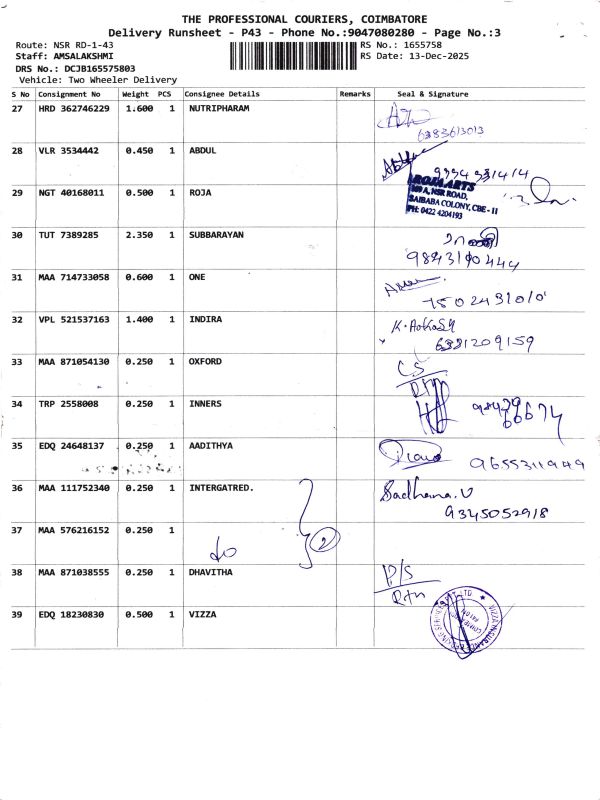 THE PROFESSIONAL COURIERS, COIMBATORE
Delivery Runsheet - P43 - Phone No.:9047080280 - Page No.:3
Route: NSR RD-1-43 RS No.: 1655758
Staff: AMSALAKSHMI RS Date: 13-Dec-2025
DRS No.: DCJB165575803
Vehicle: Two Wheeler Delivery
S No Consignment No Weight PCS Consignee Details Remarks Seal & Signature
27 HRD 362746229 1.600 1 NUTRIPHARAM
6383613013
28 VLR 3534442 0.450 1 ABDUL
29 NGT 40168011 0.500 1 ROJA
ROJA ARTS
NSR ROAD,
SAIBABA COLONY, CBE - 11
PH: 0422 4204193
30 TUT 7389285 2.350 1 SUBBARAYAN
31 MAA 714733058 0.600 1 ONE
7502431010
32 VPL 521537163 1.400 1 INDIRA
33 MAA 871054130 0.250 1 OXFORD
CS
34 TRP 2558008 0.250 1 INNERS
35 EDQ 24648137 0.250 1 AADITHYA
9655311949
36 MAA 111752340 0.250 1 INTERGATRED. Sadhana.V
9345052918
37 MAA 576216152 0.250 1
do 2
38 MAA 871038555 0.250 1 DHAVITHA P/S
39 EDQ 18230830 0.500 1 VIZZA